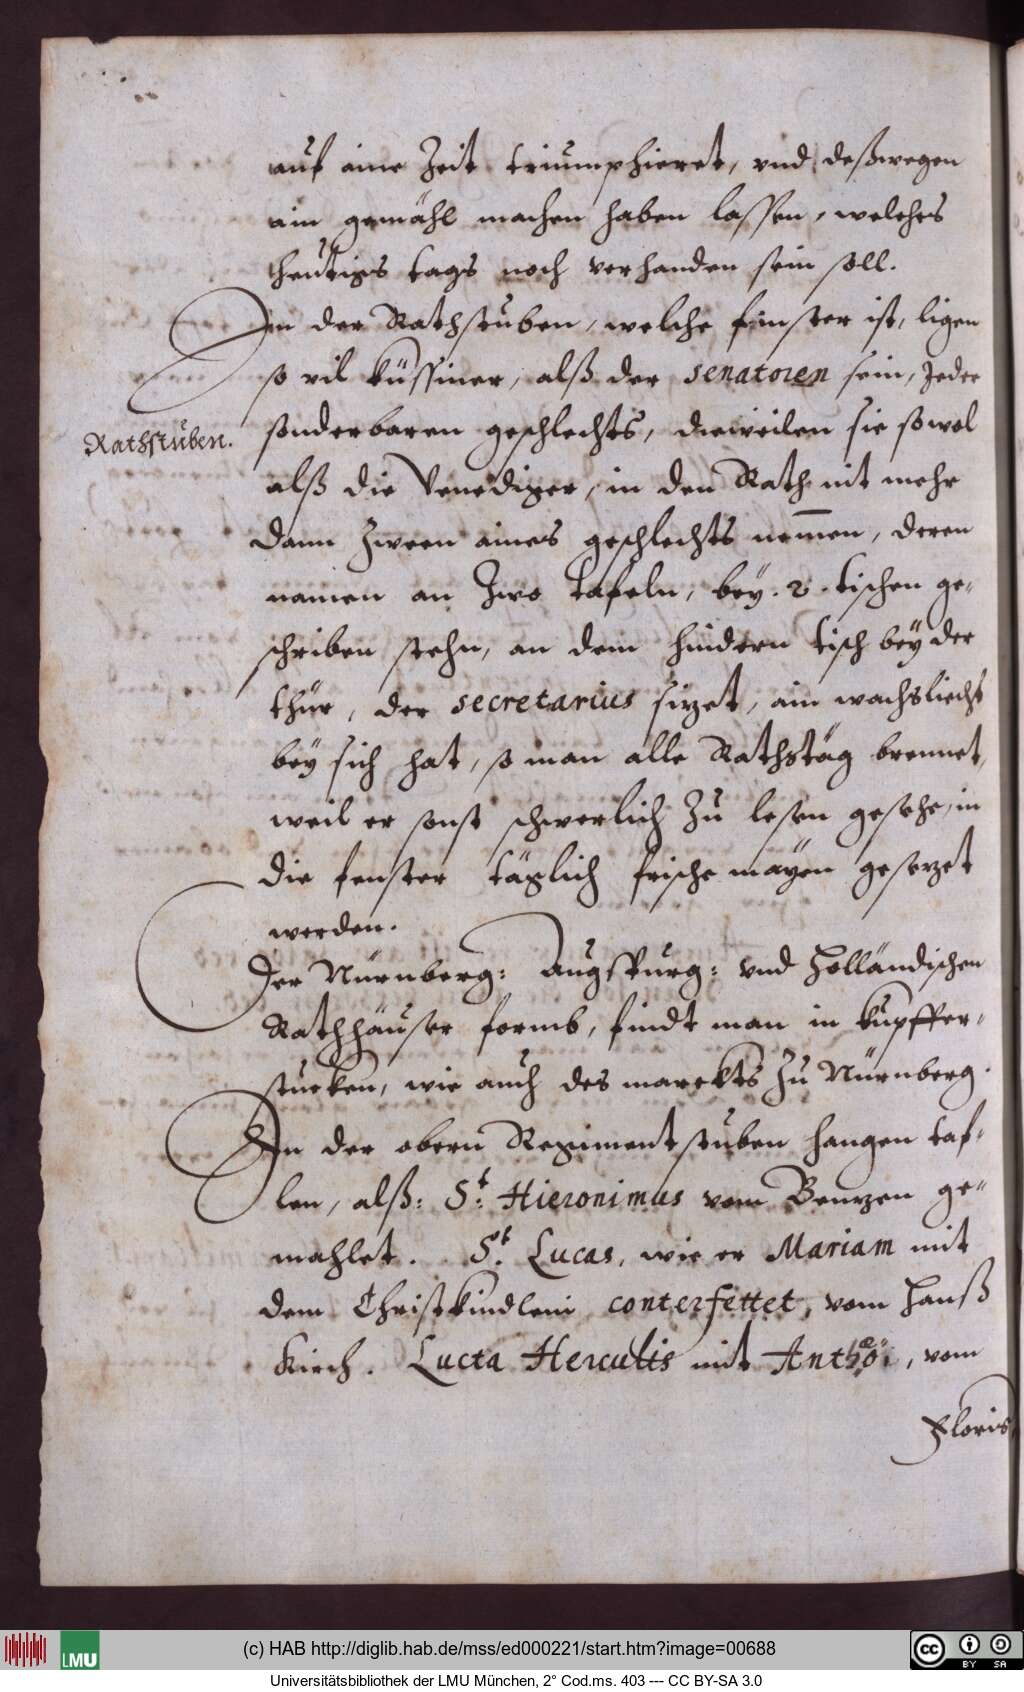 auf aine Zeit triumphieret, vnd deßwegen
ain gemähl machen haben lassen, welches
heutigs tags noch verhanden sein soll.
In der Rathstuben, welche finster ist, ligen
so vil küssiner, alß der senatoren sein, Jeder
Rathstuben.
sonderbaren geschlechts, dieweilen sie sowol
alß die Venediger, in den Rath nit mehr
dann Zween aines geschlechts nem̅en, deren
namen an Zwo tafeln, bey .2. tischen ge-
schriben stehn, an dem hindern tisch bey der
thür, der secretarius sizet, ain wachsliecht
bey sich hat, so man alle Rathstäg brennet,
weil er sonst schwerlich Zu lesen gesehe, in
die fenster täglich frische mäyen gesezet
werden.
Der Nürnberg: Augspurg: vnd Holländischen
Rathhäuser formb, findt man in kupffer-
stucken, wie auch des marckts Zu Nürnberg.
In der obern Regimentstuben hangen taf-
len, alß: St: Hieronimus vom Benzen ge-
mahlet. St. Lucas, wie er Mariam mit
dem Christkindlein conterfettet, vom Hanß
Kirch. Lucta Herculis mit , vom
Floris,
(c) HAB http://diglib.hab.de/mss/ed000221/start.htm?image=00688
LMU
cc BY SA
Universitätsbibliothek der LMU München, 2° Cod.ms. 403 --- CC BY-SA 3.0